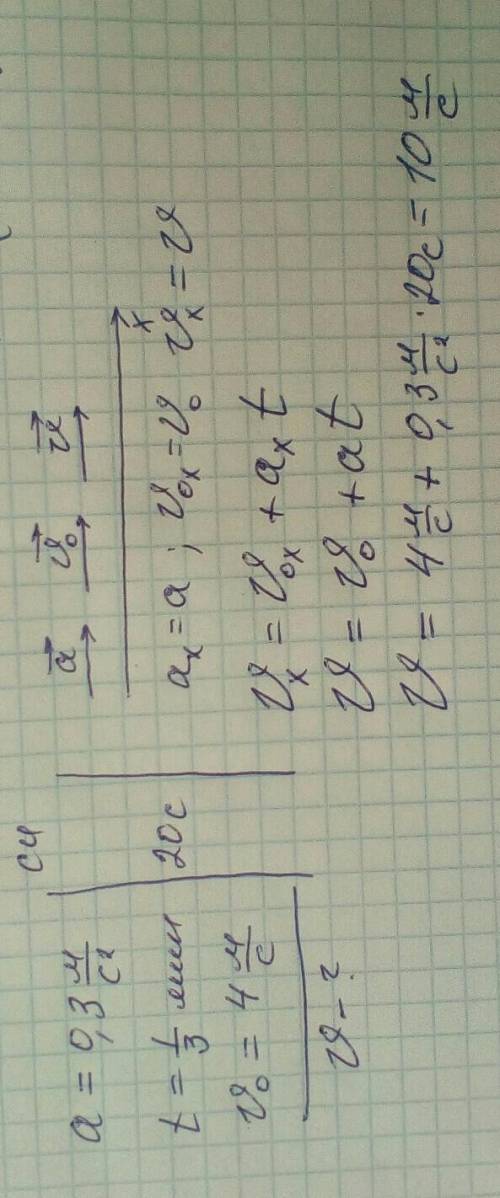 СИ
a = 0,3 м/с²
t = 1/3 мин
20с
v₀ = 4 м/с
v - ?
a⃗ v⃗₀ v⃗
x
aₓ = a ; v₀ₓ = v₀ vₓ = v
vₓ = v₀ₓ + aₓ t
v = v₀ + at
v = 4 м/с + 0,3 м/с² · 20с = 10 м/с